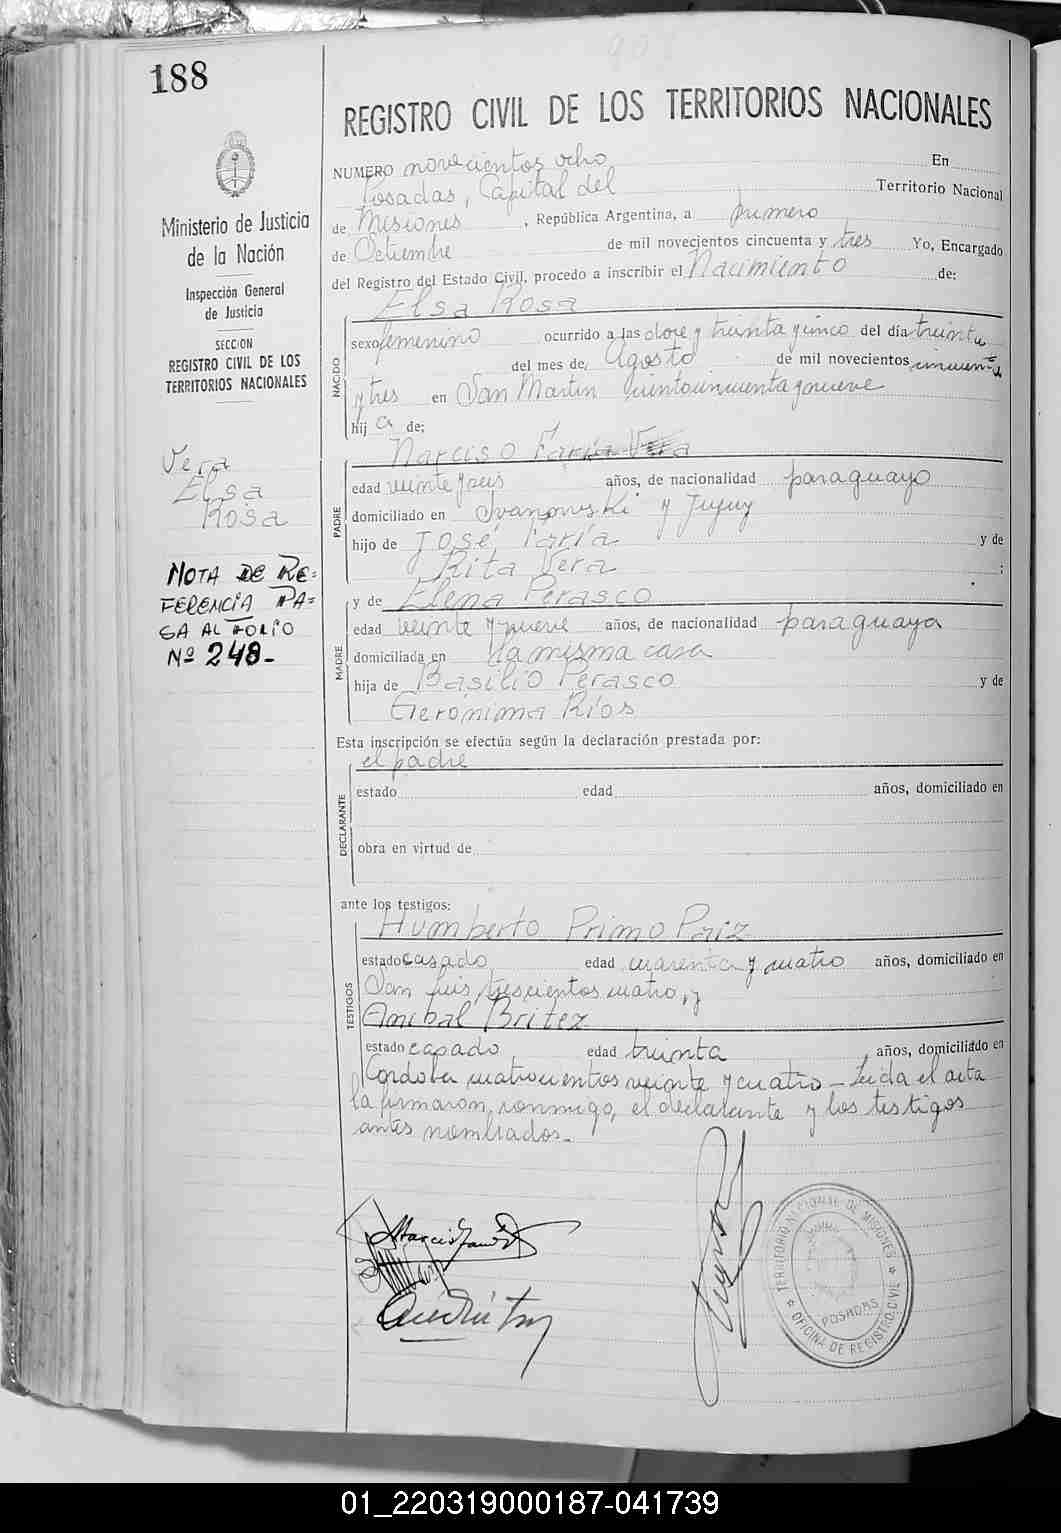 188
REGISTRO CIVIL DE LOS TERRITORIOS NACIONALES
Ministerio de Justicia
de la Nación
Inspección General
de Justicia
SECCION
REGISTRO CIVIL DE LOS
TERRITORIOS NACIONALES
Vera
Elsa
Rosa
NOTA DE RE=
FERENCIA PA=
SA AL FOLIO
Nº 248-
NUMERO novecientos ocho En
Posadas, Capital del Territorio Nacional
de Misiones, República Argentina, a primero
de Octiembre de mil novecientos cincuenta y tres Yo, Encargado
del Registro del Estado Civil, procedo a inscribir el Nacimiento de:
NACIDO
Elsa Rosa
sexo femenino ocurrido a las doce y treinta y cinco del día treinta
del mes de, Agosto de mil novecientos cincuenta
y tres en San Martin cientocincuenta y nueve
hij a de;
PADRE
Narciso Faría Vera
edad veinte y seis años, de nacionalidad paraguayo
domiciliado en Ivanowski y Jujuy
hijo de José Faría y de
Rita Vera ;
MADRE
y de Elena Perasco
edad veinte y nueve años, de nacionalidad paraguaya
domiciliada en la misma casa
hija de Basilio Perasco y de
Gerónima Ríos
Esta inscripción se efectúa según la declaración prestada por:
DECLARANTE
el padre
estado edad años, domiciliado en
obra en virtud de
ante los testigos:
TESTIGOS
Humberto Primo Paiz
estado casado edad cuarenta y cuatro años, domiciliado en
San Luis trescientos cuatro, y
Anibal Britez
estado casado edad treinta años, domiciliado en
Cordoba cuatrocientos veinte y cuatro - Leida el acta
la firmaron, conmigo, el declarante y los testigos
antes nombrados.-
TERRITORIO NACIONAL DE MISIONES
POSADAS
OFICINA DE REGISTRO CIVIL
01_220319000187-041739